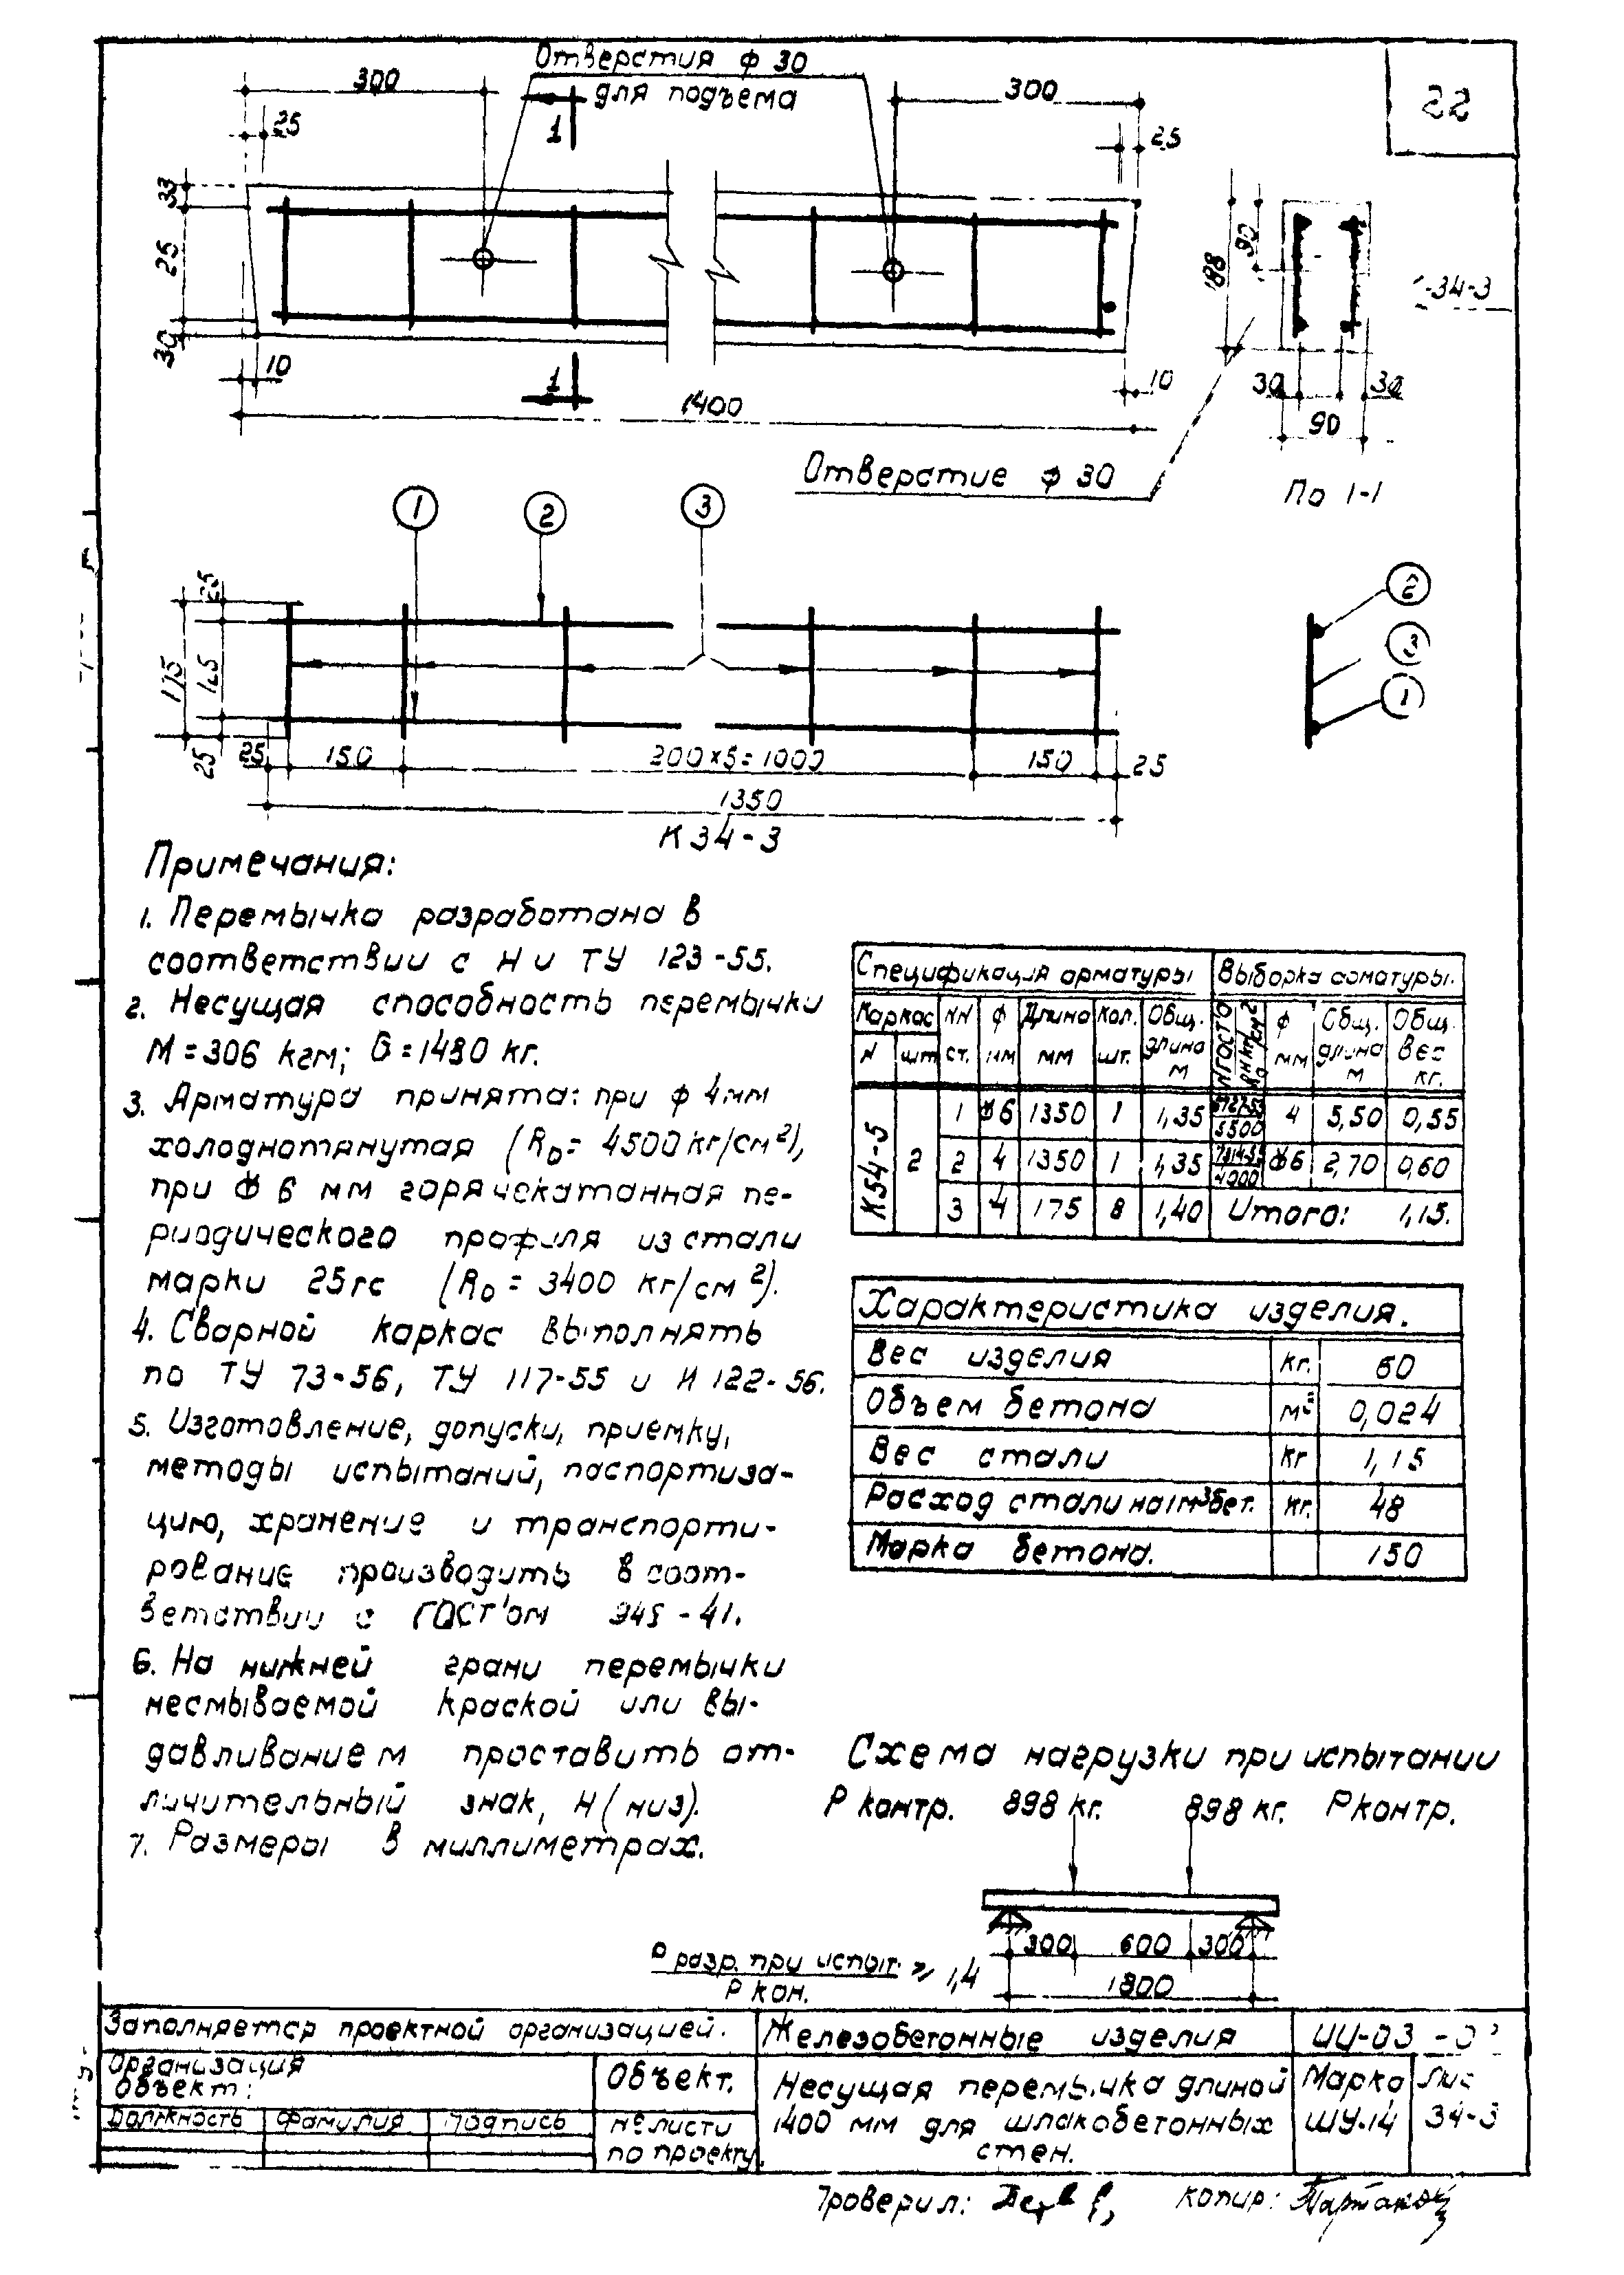 22
Отверстия ф 30
для подъема
300
300
25
1
25
33
25
30
10
1
1400
10
188
90
30
30
90
-34-3
Отверстие ф 30
По 1-1
1
2
3
25
175
125
25
25
150
200×5=1000
150
25
1350
К34-3
2
3
1
Примечания:
1. Перемычка разработана в
соответствии с Н и ТУ 123-55.
2. Несущая способность перемычки
М = 306 кгм; Q = 1480 кг.
3. Арматура принята: при ф 4мм
холоднотянутая (Rа = 4500 кг/см²),
при ф 6 мм горячекатанная пе-
риодического профиля из стали
марки 25гс (Rа = 3400 кг/см²).
4. Сварной каркас выполнять
по ТУ 73-56, ТУ 117-55 и И 122-56.
5. Изготовление, допуски, приемку,
методы испытаний, паспортиза-
цию, хранение и транспорти-
рование производить в соот-
ветствии с ГОСТ'ом 945-41.
6. На нижней грани перемычки
несмываемой краской или вы-
давливанием проставить от-
личительный знак, Н (низ).
7. Размеры в миллиметрах.
Спецификация арматуры Выборка арматуры.
Каркас NN ф Длина Кол. Общ. NГОСТ'О ф Общ. Общ.
N шт ст. мм мм шт. длина м мм длина м вес кг.
К54-5 2
1 ф6 1350 1 1,35 6727-53 5500 4 5,50 0,55
2 4 1350 1 1,35 7314-55 4000 ф6 2,70 0,60
3 4 175 8 1,40 Итого: 1,15.
Характеристика изделия.
Вес изделия кг. 60
Объем бетона м³ 0,024
Вес стали кг 1,15
Расход стали на 1м³ бет. кг. 48
Марка бетона. 150
Схема нагрузки при испытании
Р контр. 898 кг. 898 кг. Р контр.
300 600 300
1800
Р разр. при испыт. ⩾ 1,4
Р кон.
Заполняется проектной организацией.
Организация
Объект:
Объект.
Должность Фамилия Подпись
№ листа
по проекту.
Железобетонные изделия
ИИ-03 -0
Несущая перемычка длиной
1400 мм для шлакобетонных
стен.
Марка
ШУ-14
Лис
34-3
Проверил:
Копир: